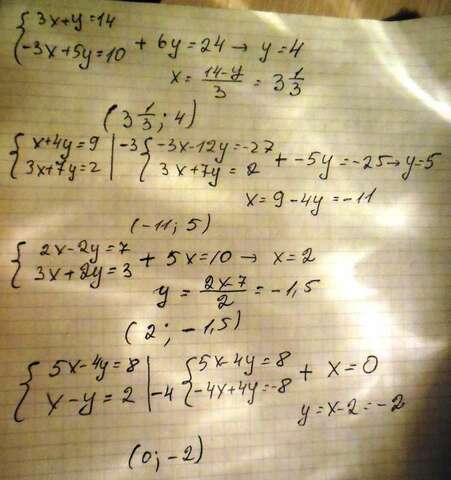 {3x+y=14
{-3x+5y=10 + 6y=24 → y=4
x = (14-y)/3 = 3 1/3
(3 1/3; 4)
{x+4y=9 |-3 {-3x-12y=-27
{3x+7y=2 | {3x+7y=2 + -5y=-25→y=5
x=9-4y=-11
(-11; 5)
{2x-2y=7
{3x+2y=3 + 5x=10 → x=2
y = (2x-7)/2 = -1,5
(2; -1,5)
{5x-4y=8 | {5x-4y=8
{x-y=2 |-4 {-4x+4y=-8 + x=0
y=x-2=-2
(0; -2)